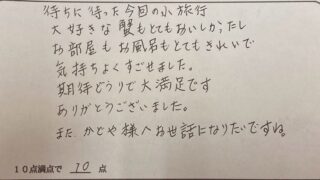 待ちに待った今回の小旅行
大好きな蟹もとてもおいしかったし
お部屋もお風呂もとてもきれいで
気持ちよくすごせました。
期待どうりで大満足です
ありがとうございました。
また かどや様へお世話になりたいですね。
10点満点で 10 点